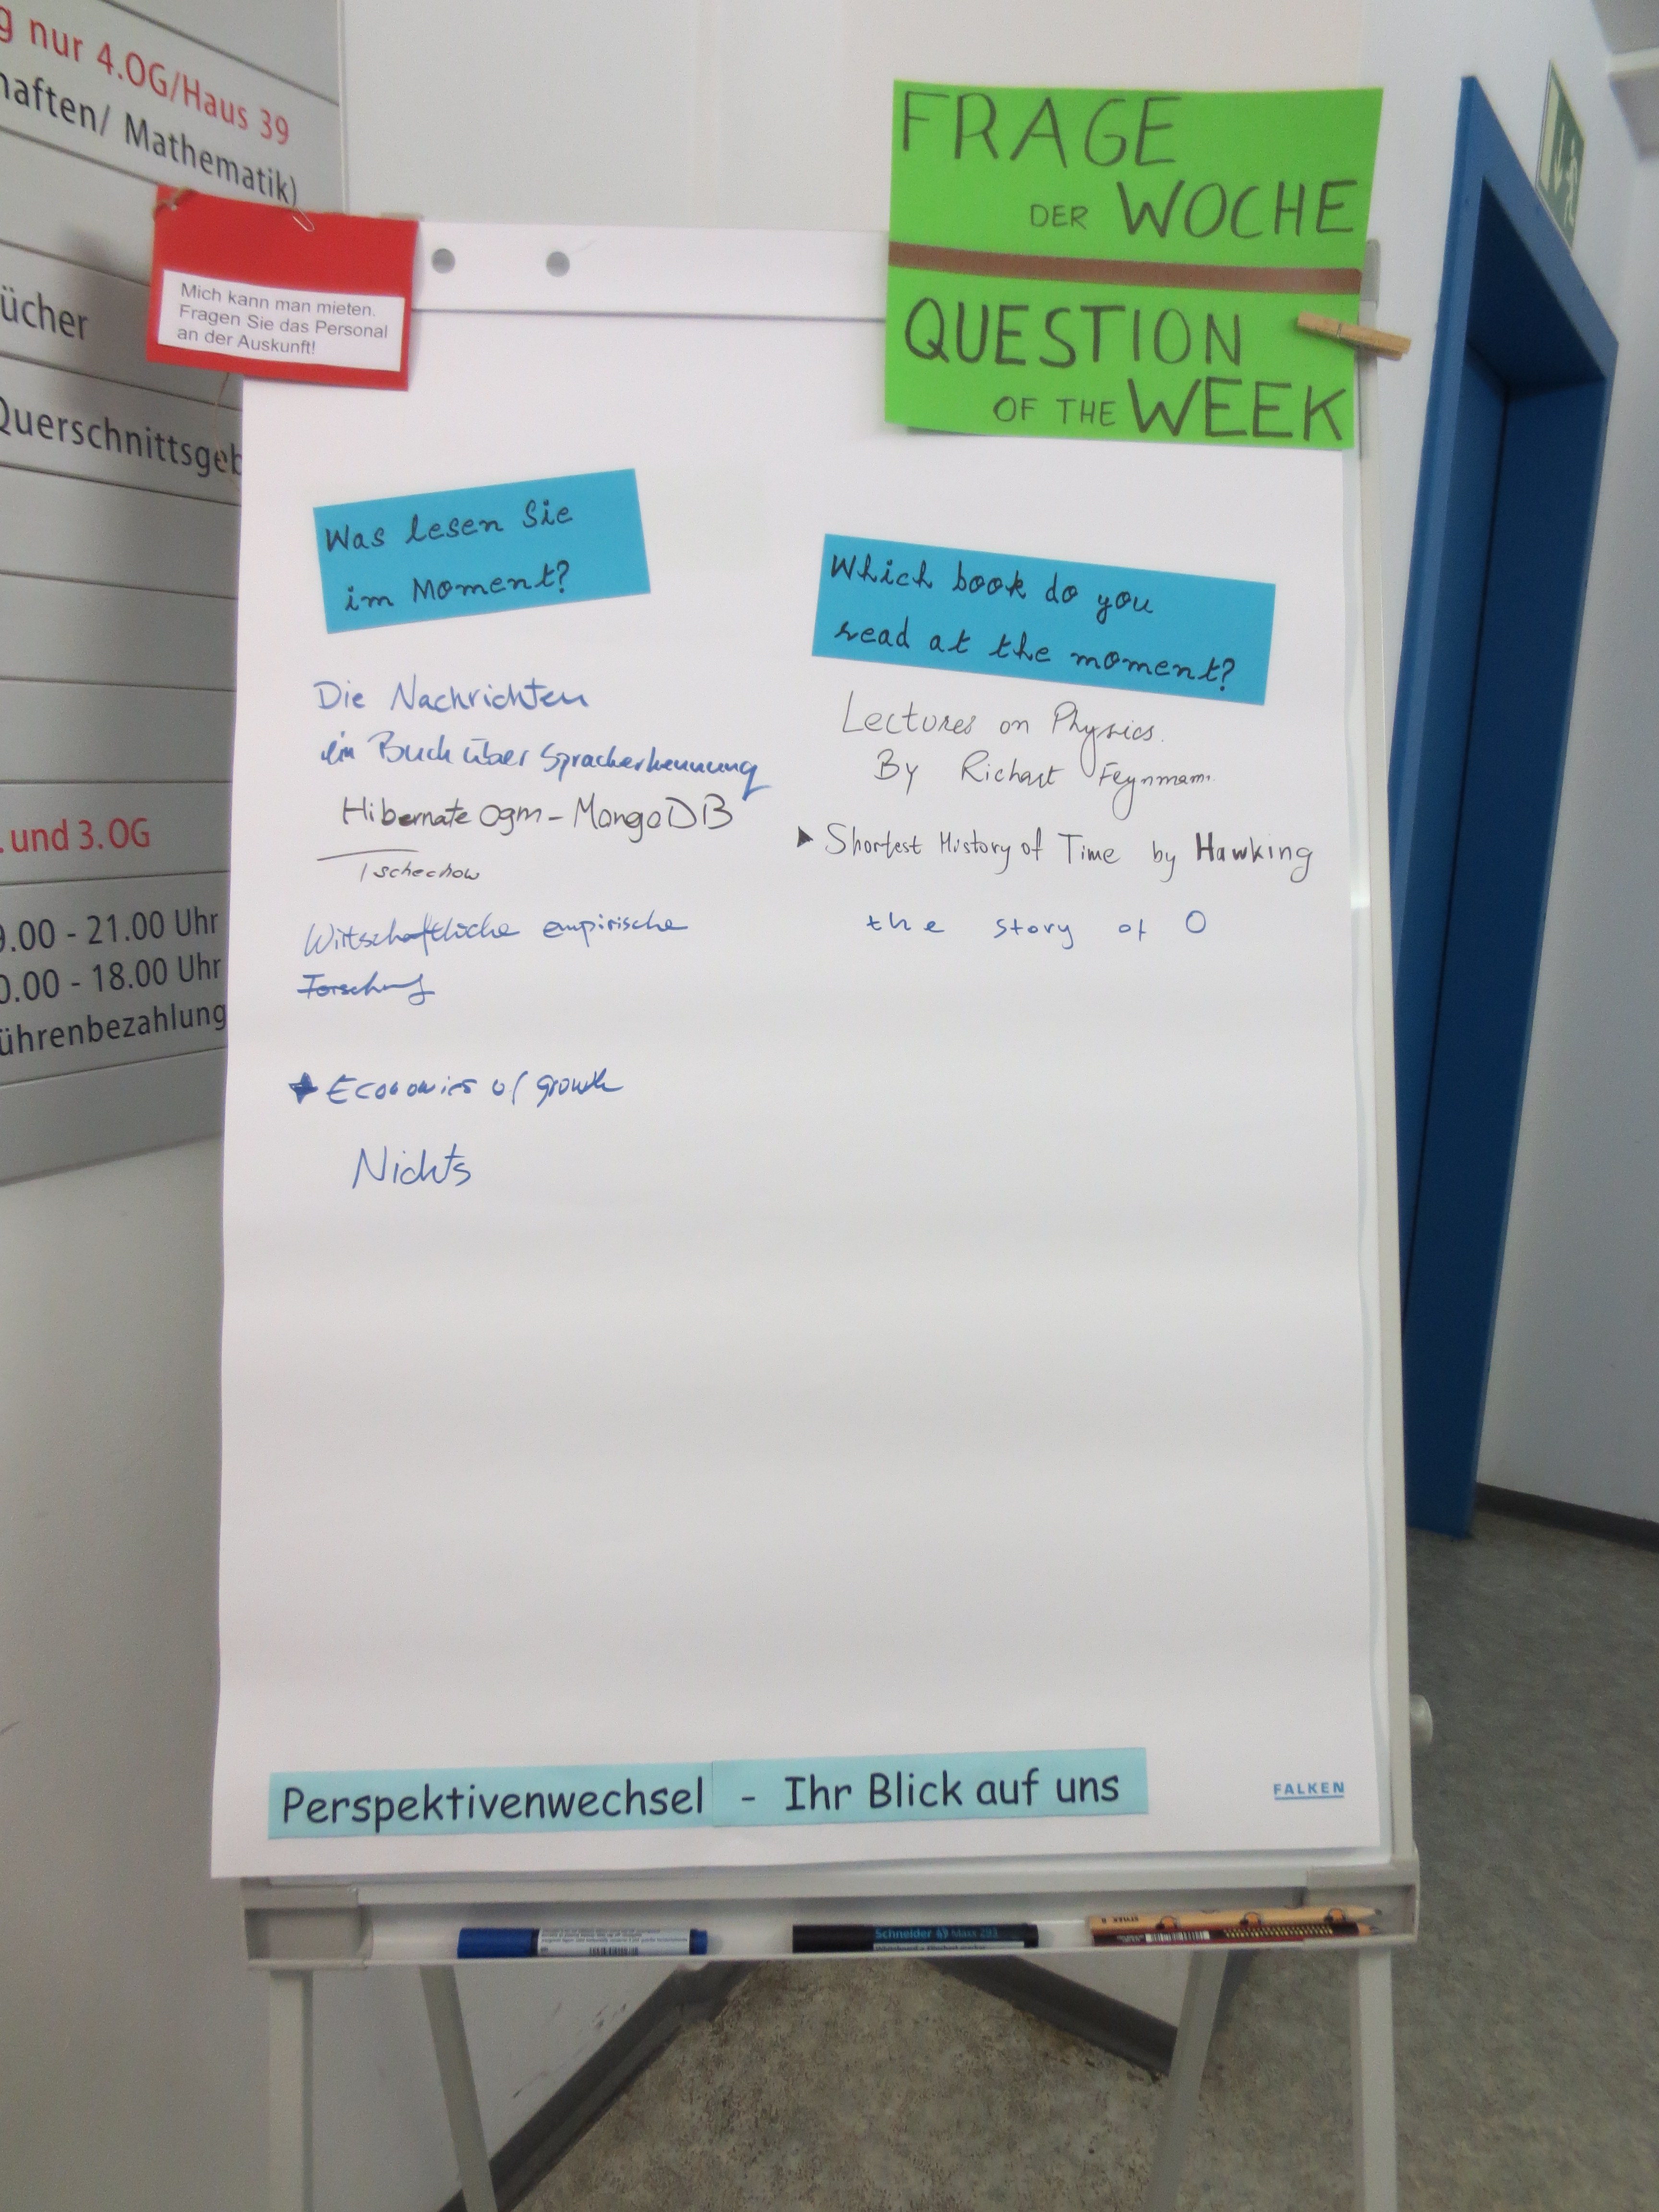 g nur 4.OG/Haus 39
haften/ Mathematik)
ücher
Querschnittsgeb
. und 3.OG
9.00 - 21.00 Uhr
0.00 - 18.00 Uhr
ührenbezahlung
Mich kann man mieten.
Fragen Sie das Personal
an der Auskunft!
FRAGE
DER WOCHE
QUESTION
OF THE WEEK
Was lesen Sie
im Moment?
Die Nachrichten
ein Buch über Spracherkennung
Hibernate Ogm - MongoDB
Tschechow
Wirtschaftliche empirische
Forschung
Economics of growth
Nichts
Which book do you
read at the moment?
Lectures on Physics.
By Richart Feynmam.
Shortest History of Time by Hawking
the story of O
Perspektivenwechsel - Ihr Blick auf uns
FALKEN
Schneider Maxx 293